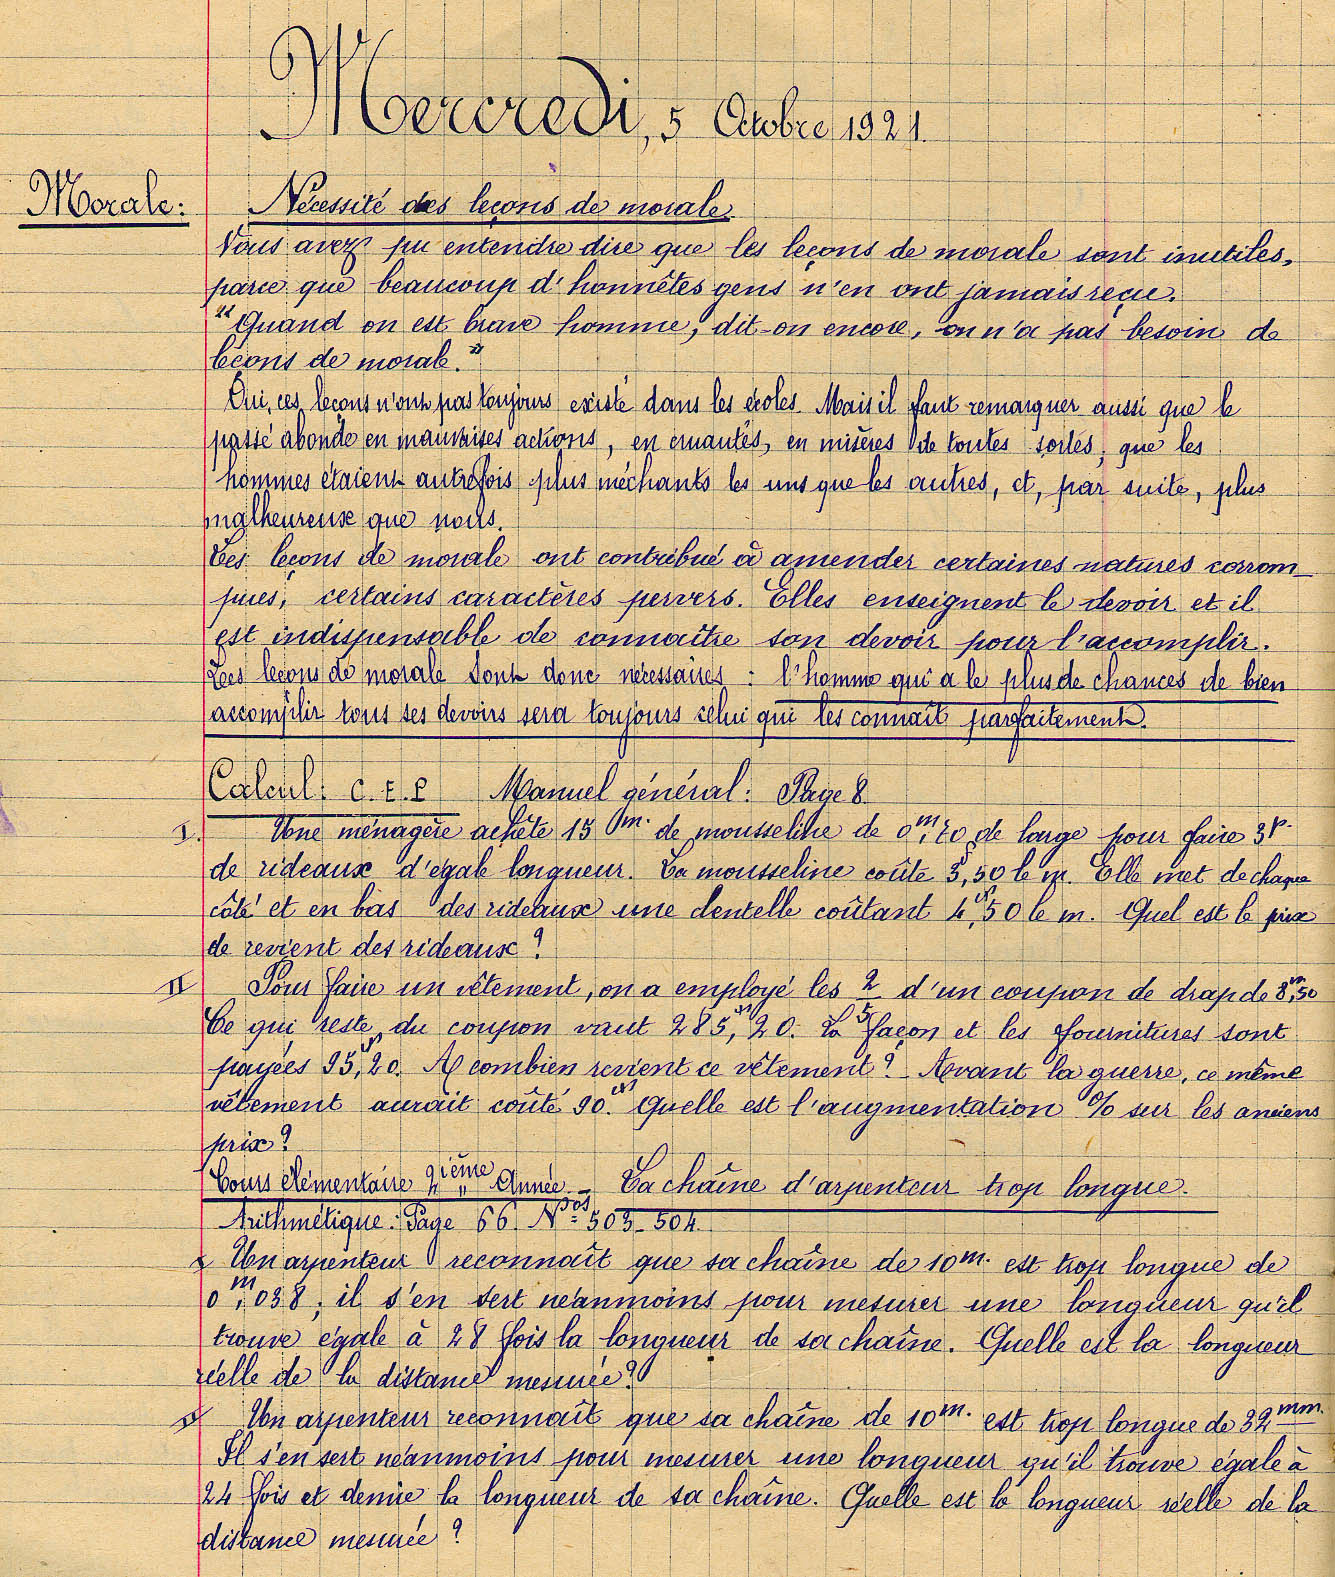 Mercredi, 5 Octobre 1921.
Morale: Nécessité des leçons de morale.
Vous avez pu entendre dire que les leçons de morale sont inutiles,
parce que beaucoup d'honnêtes gens n'en ont jamais reçu.
"Quand on est brave homme, dit-on encore, on n'a pas besoin de
leçons de morale."
Oui, ces leçons n'ont pas toujours existé dans les écoles. Mais il faut remarquer aussi que le
passé abonde en mauvaises actions, en cruautés, en misères de toutes sortes; que les
hommes étaient autrefois plus méchants les uns que les autres, et, par suite, plus
malheureux que nous.
Les leçons de morale ont contribué à amender certaines natures corrom-
pues, certains caractères pervers. Elles enseignent le devoir et il
est indispensable de connaître son devoir pour l'accomplir.
Les leçons de morale sont donc nécessaires : l'homme qui a le plus de chances de bien
accomplir tous ses devoirs sera toujours celui qui les connaît parfaitement.
Calcul: C.E.P Manuel général: Page 8.
I. Une ménagère achète 15 m. de mousseline de 0m,70 de large pour faire 3 p.
de rideaux d'égale longueur. La mousseline coûte 3f,50 le m. Elle met de chaque
côté et en bas des rideaux une dentelle coûtant 4f,50 le m. Quel est le prix
de revient des rideaux?
II Pour faire un vêtement, on a employé les 2/5 d'un coupon de drap de 8m,50
Ce qui reste du coupon vaut 285f,20. La façon et les fournitures sont
payées 95f,20. A combien revient ce vêtement? - Avant la guerre, ce même
vêtement aurait coûté 90f. Quelle est l'augmentation % sur les anciens
prix?
Cours élémentaire 2ième Année - La chaîne d'arpenteur trop longue.
Arithmétique: Page 66. Nos 503-504.
I Un arpenteur reconnaît que sa chaîne de 10m. est trop longue de
0m,038; il s'en sert néanmoins pour mesurer une longueur qu'il
trouve égale à 28 fois la longueur de sa chaîne. Quelle est la longueur
réelle de la distance mesurée?
II Un arpenteur reconnaît que sa chaîne de 10m. est trop longue de 32mm.
Il s'en sert néanmoins pour mesurer une longueur qu'il trouve égale à
24 fois et demie la longueur de sa chaîne. Quelle est la longueur réelle de la
distance mesurée?